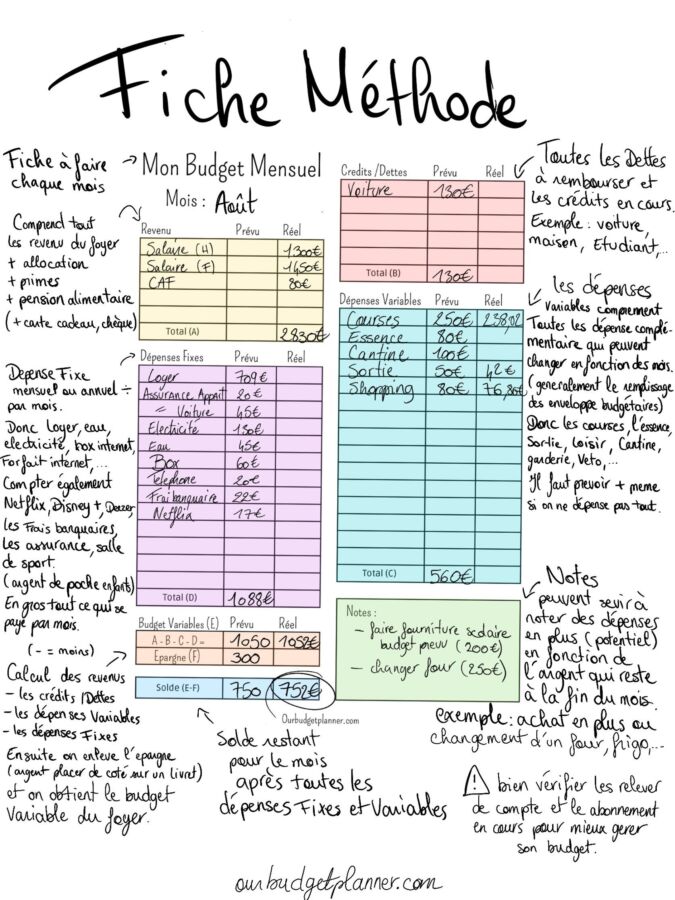 Fiche Méthode
Fiche à faire
chaque mois
Mon Budget Mensuel
Mois : Août
Comprend tout
les revenu du foyer
+ allocation
+ primes
+ pension alimentaire
(+ carte cadeau, chèque)
Revenu Prévu Réel
Salaire (H) 1300€
Salaire (F) 1450€
CAF 80€
Total (A) 2830€
Dépense Fixe
mensuel ou annuel ÷
par mois.
Donc loyer, eau,
electricité, box internet,
Forfait internet,...
Compter également
Netflix, Disney+, Deezer,
les Frais banquaires,
les assurance, salle
de sport.
(argent de poche enfants)
En gros tout ce qui se
paye par mois.
Dépenses Fixes Prévu Réel
Loyer 709€
Assurance Appart 20€
= Voiture 45€
Electricité 130€
Eau 45€
Box 60€
Telephone 20€
Frai banquaire 22€
Netflix 17€
Total (D) 1088€
(- = moins)
Calcul des revenus
- les crédits/Dettes
- les dépenses Variables
- les dépenses Fixes
Ensuite on enleve l'épargne
(argent placer de coté sur un livret)
et on obtient le budget
Variable du foyer.
Budget Variables (E) Prévu Réel
A - B - C - D = 1050 1052€
Epargne (F) 300
Solde (E-F) 750 752€
Ourbudgetplanner.com
Solde restant
pour le mois
après toutes les
dépenses Fixes et Variables
Credits /Dettes Prévu Réel
Voiture 130€
Total (B) 130€
Toutes les Dettes
à rembourser et
les crédits en cours.
Exemple : voiture,
maison, Etudiant,...
Dépenses Variables Prévu Réel
Courses 250€ 238,02
Essence 80€
Cantine 100€
Sortie 50€ 42€
Shopping 80€ 76,80€
Total (C) 560€
les dépenses
variables comprennent
Toutes les dépense complé-
mentaire qui peuvent
changer en fonction des mois.
(generalement le remplissage
des enveloppe budgétaires)
Donc les courses, l'essence,
Sortie, loisir, Cantine,
garderie, Veto,...
Il faut prevoir + meme
si on ne dépense pas tout.
Notes :
- faire fourniture scolaire
budget prevu (200€)
- changer four (250€)
Notes
peuvent sevir à
noter des dépenses
en plus (potentiel)
en fonction de
l'argent qui reste
à la fin du mois.
exemple : achat en plus ou
changement d'un four, frigo,...
bien vérifier les relever
de compte et le abonnement
en cours pour mieux gerer
son budget.
ourbudgetplanner.com